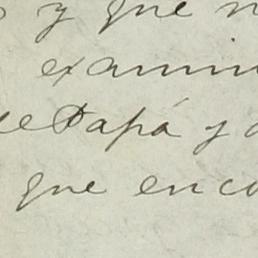 y que
examin
de Papá y
que enco